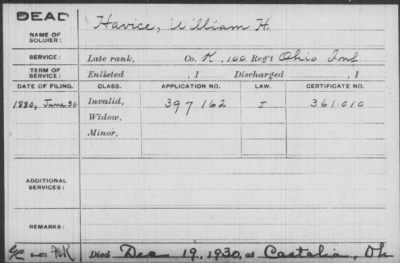 DEAD
NAME OF SOLDIER: Havice, William H.
SERVICE: Late rank, Co. K, 100 Reg't Ohio Inf
TERM OF SERVICE: Enlisted , 1 Discharged , 1
DATE OF FILING. CLASS. APPLICATION NO. LAW. CERTIFICATE NO.
1880, June 30 Invalid, 397162 J 361010
Widow,
Minor,
ADDITIONAL SERVICES:
REMARKS:
Died Dec 19, 1930, at Castalia, Oh